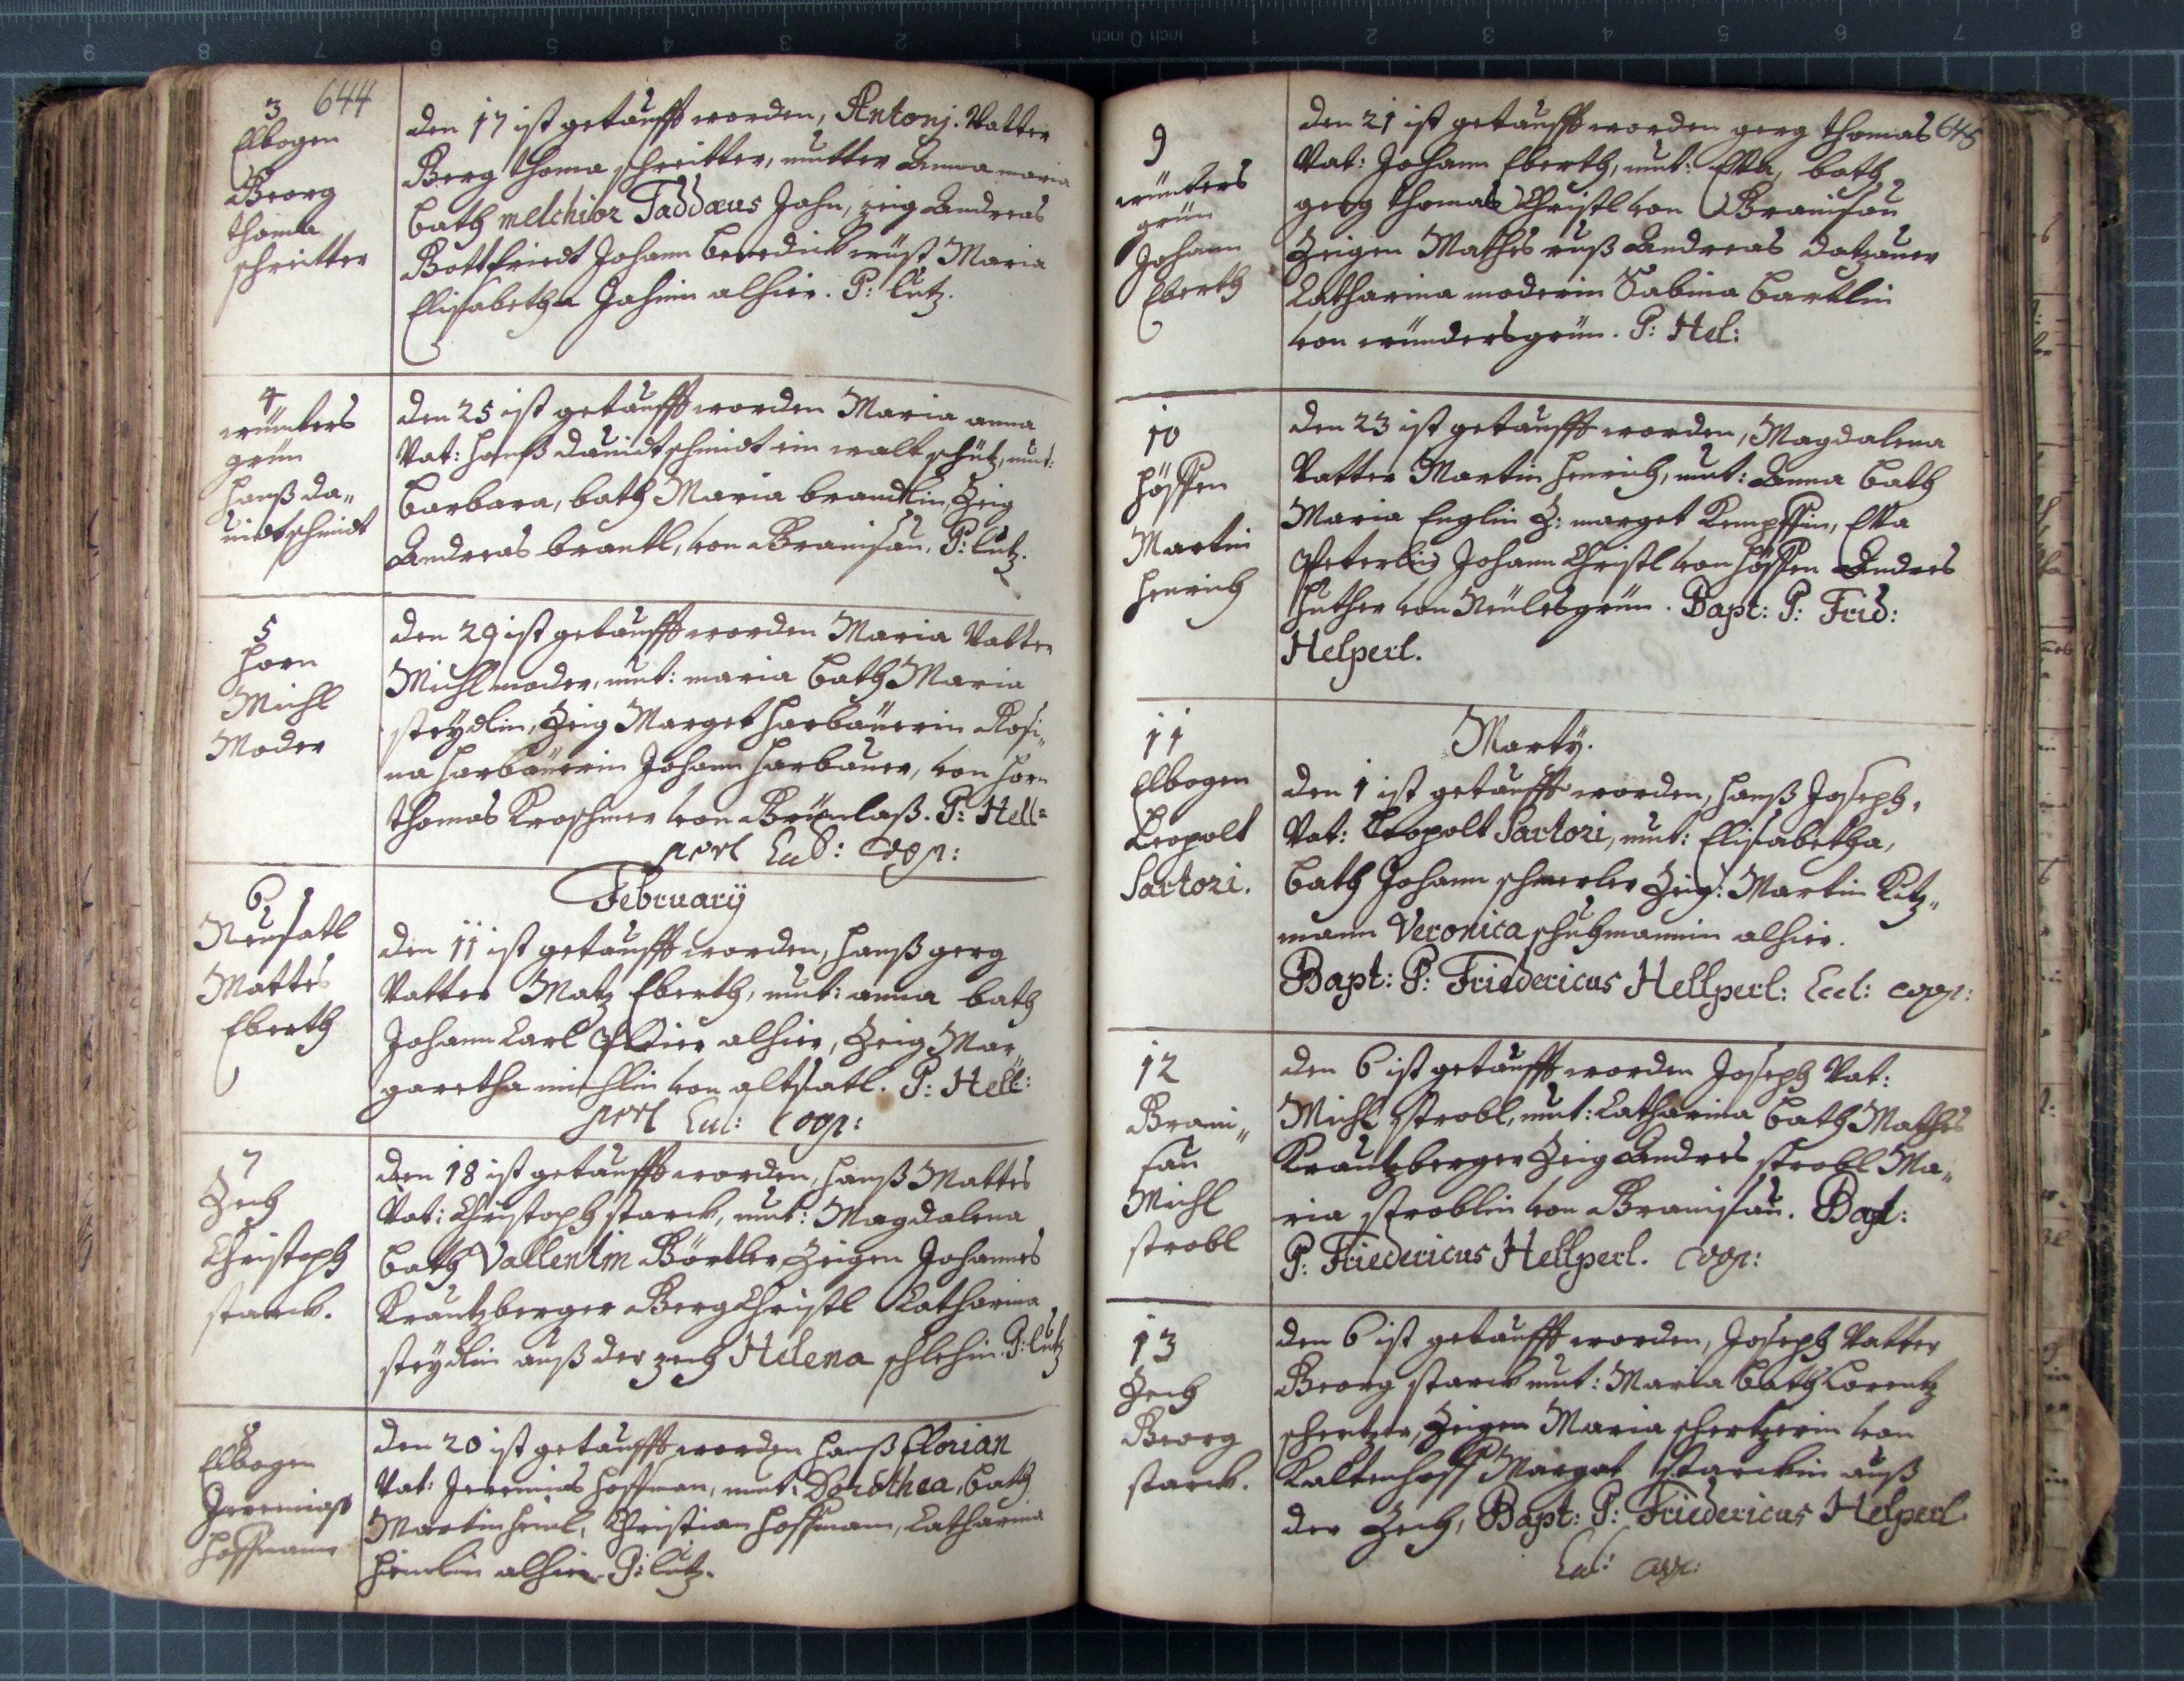 644
3
Elbogen
Georg
thoma
schreitter
den 17 ist getaufft worden, Antonj. Vatter
Gerg thoma schreitter, mutter Anna maria
bath melchior Taddæus Jahn, zeig Andreas
Gottfriedt Johann benedict wüst Maria
Elisabetha Jahnin alhier. P: lutz.
4
wünters
grün
hanß da„
uidt schmidt
den 25 ist getaufft worden Maria anna
Vat: hanß dauidt schmidt ein walt schütz, mut:
barbara, bath Maria brandtlin, Zeig
Andreas brantl, von Graniſau, P: lutz.
5
horn
Michl
Moder
den 29 ist getaufft worden Maria Vatter
Michl moder, mut: maria bath Maria
steydlin, Zeig Marget harbauerin Rosi„
na harbauerin Johann harbauer, von horn
thomas Kroschmer von Grünlaß. P: Hell=
perl Ecl: Coop:
February
6
Neusatl
Mattes
Eberth
den 11 ist getaufft worden, hanß gerg
Vatter Matz Eberth, mut: anna bath
Johann Carl alhier, Zeig Mar„
garetha michlin von altsatl. P: Hell:
perl Ecl: Coop:
7
Zech
Christoph
starck.
den 18 ist getaufft worden, hanß Mattes
Vat: Christoph starck, mut: Magdalena
bath Vallentin Börtler Zeigen Johannes
Krautzberger Gerg Christl Catharina
steydlin auß der zech Helena schlehin. P: lutz
8
Elbogen
Jeremias
hoffmann
den 20 ist getaufft worden hanß florian
Vat: Jeremias hoffman, mut: Dorothea, bath
Martin heinl, Christian hoffmann, Catharina
heinlin alhier. P: lutz.
645
9
wünters
grün
Johann
Eberth
den 21 ist getaufft worden gerg thomas
Vat: Johann Eberth, mut: Eva, bath
gerg thomas Christl von Graniſau
Zeigen Mathes ruß Andreas datzauer
Catharina moderin Sabina bartlin
von wündersgrün. P: Hel:
10
höffen
Martin
henrich
den 23 ist getaufft worden, Magdalena
Vatter Martin henrich, mut: Anna bath
Maria Englin Z: marget Kempffin, Eva
Peterlin Johann Christl von höffen Andres
huther von Neülesgrün. Bapt: P: Frid:
Helperl.
Martÿ.
11
Elbogen
Leopolt
Sartori.
den 1 ist getaufft worden, hanß Joseph,
Vat: Leopolt Sartori, mut: Elisabetha,
bath Johann schmerler Zeig: Martin Kitz„
mann Veronica schuhmannin alhier.
Bapt: P: Friedericus Hellperl: Eccl: coop:
12
Grani„
sau
Michl
strobl
den 6 ist getaufft worden Joseph Vat:
Michl strobl, mut: Catharina bath Mathes
Krautzberger Zeig Andres strobl Ma„
ria stroblin von Graniſau. Bapt:
P: Friedericus Hellperl. Coop:
13
Zech
Georg
starck.
den 6 ist getaufft worden, Joseph Vatter
Georg starck mut: Maria bath Lorentz
schertzer, Zeigen Maria schertzerin von
Kaltenhoff Marget starckin auß
der Zech, Bapt: P: Friedericus Helperl
Ecl: coop: